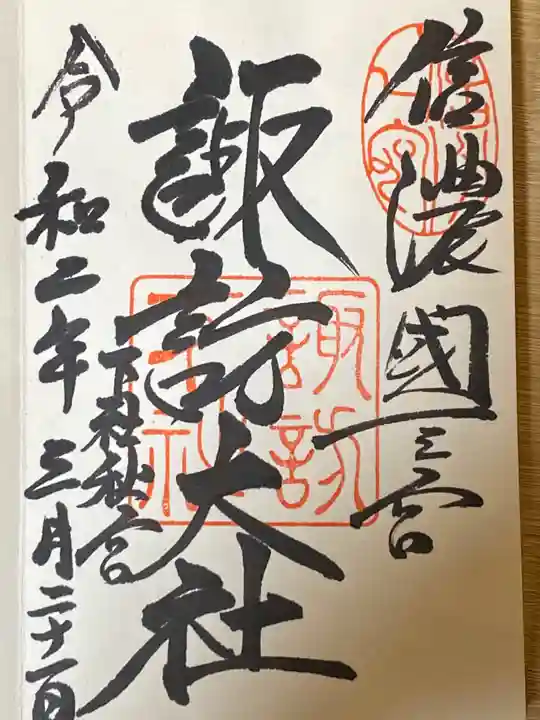 信濃國一之宮
諏訪大社
下社秋宮
令和二年三月二十一日
諏訪